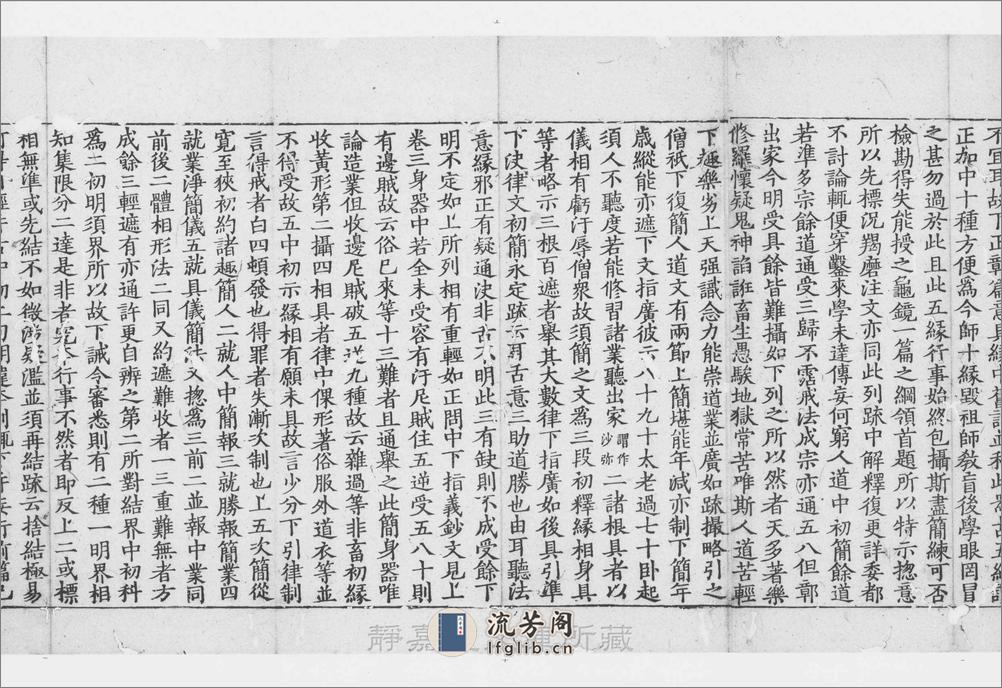 不宜耳故下正
正加中十種方便為今師十緣毀祖師教盲後學眼罔冒
之甚勿過於此且此五緣行事始終包攝斯盡簡練可否
檢勘得失能授之龜鏡一篇之綱領首題所以特示揔意
所以先標況羯磨注文亦同此列䟽中解釋復更詳委都
不討論輒便穿鑿來學未達傳妄何窮人道中初簡餘道
若準多宗餘道通受三歸不霑戒法成宗亦通五八但鄣
出家今明受具餘皆難攝如下列之所以然者天多著樂
修羅懷疑鬼神諂誑畜生愚騃地獄常苦唯斯人道苦輕
下趣樂劣上天强識念力能崇道業並廣如䟽撮略引之
僧祇下復簡人道文有兩節上簡堪能年減亦制下簡年
歲縱能亦遮下文指廣彼云八十九十太老過七十臥起
須人不聽度若能修習諸業聽出家謂作沙弥二諸根具者以
儀相有虧汙辱僧衆故須簡之文為三段初釋緣相身具
等者略示三根百遮者舉其大數律下指廣如後具引準
下決律文初簡永定䟽云耳舌意三助道勝也由耳聽法
意緣邪正有疑通決非舌不明此三有缺則不成受餘下
明不定如上所列相有重輕如正問中下指義鈔文見上
卷三身器中若全未受容有汙尼賊住五逆受五八十則
有邊賊故云俗已來等十三難者且通舉之此簡身器唯
論造業但收邊尼賊破五逆九種故云雜過等非畜初緣
收黃形第二攝四相具者律中倮形著俗服外道衣等並
不得受故五中初示緣相有願未具故言少分下引律制
言得戒者白四頓發也得罪者失漸次制也上五次簡從
寬至狹初約諸趣簡人二就人中簡報三就勝報簡業四
就業淨簡儀五就具儀簡法又揔為三前二並報中業同
前後二體相形法二同又約遮難收者一三重難無者方
成餘三輕遮有亦通許更自辨之第二所對結界中初科
為二初明須界所以故下誡令審悉則有二種一明界相
知集限分二達是非者究本行事不然者即反上二或標
相無準或先結不如微涉疑濫並須再結䟽云捨結極易